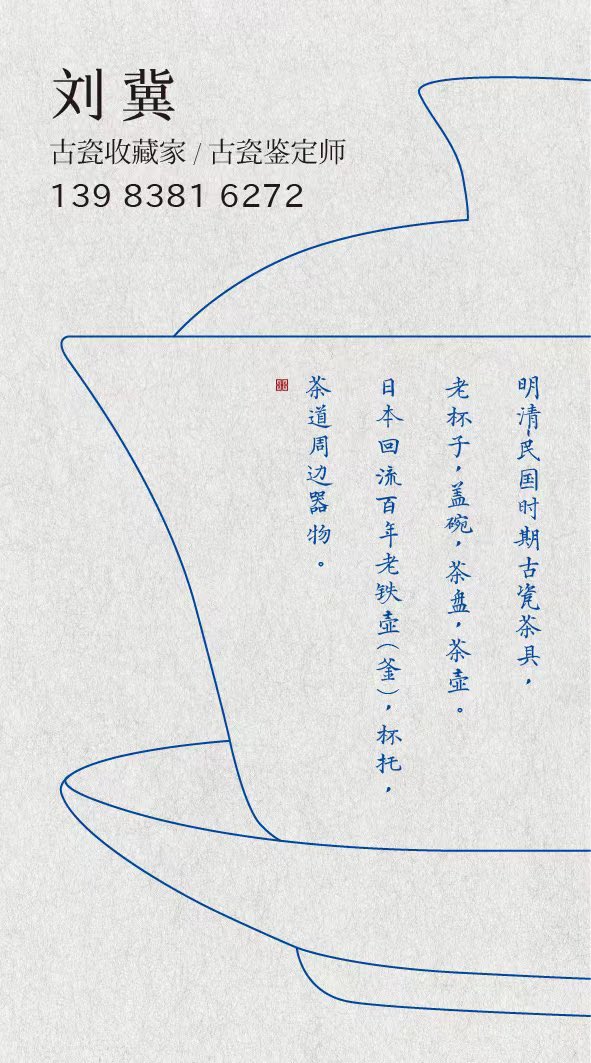 刘冀
古瓷收藏家 / 古瓷鉴定师
139 8381 6272
明清-民国时期古瓷茶具，
老杯子，盖碗，茶盘，茶壶。
日本回流百年老铁壶（釜），杯托，
茶道周边器物。